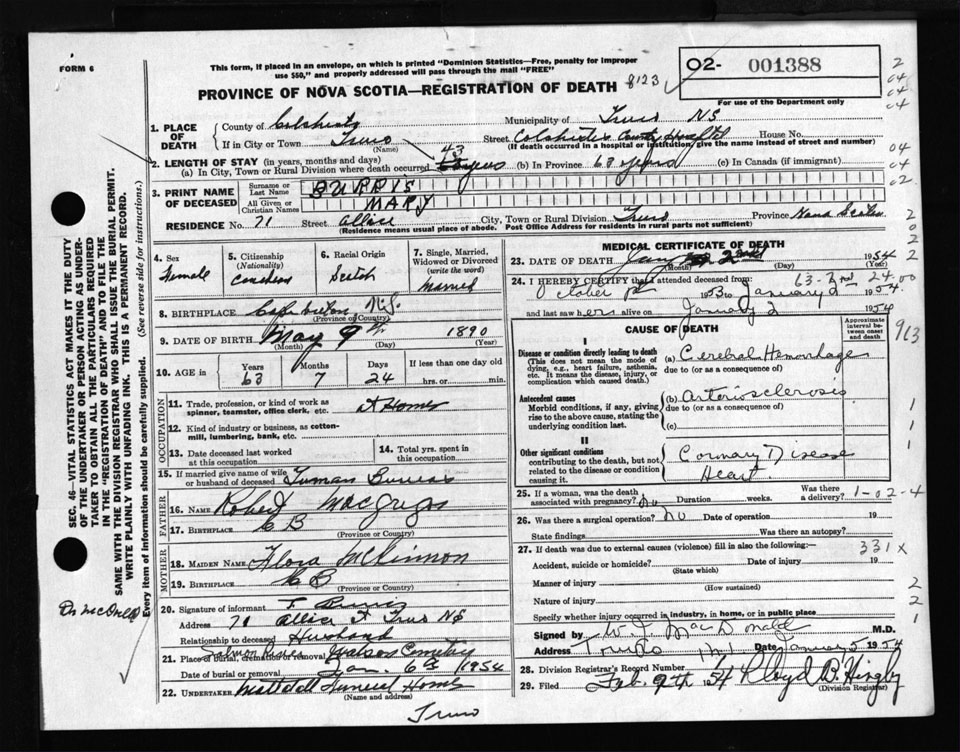 FORM 6
This form, if placed in an envelope, on which is printed "Dominion Statistics—Free, penalty for improper
use $50," and properly addressed will pass through the mail "FREE"
8123
PROVINCE OF NOVA SCOTIA—REGISTRATION OF DEATH
O2- 001388
For use of the Department only
1. PLACE OF DEATH
County of Colchester Municipality of Truro NS
If in City or Town Truro Street Colchester County Hospital House No.
(Name) (If death occurred in a hospital or institution, give the name instead of street and number)
2. LENGTH OF STAY (in years, months and days)
(a) In City, Town or Rural Division where death occurred 43 years (b) In Province 63 years (c) In Canada (if immigrant)
3. PRINT NAME OF DECEASED
Surname or Last Name BURRIS
All Given or Christian Names MARY
RESIDENCE No. 71 Street Allice City, Town or Rural Division Truro Province Nova Scotia
(Residence means usual place of abode. Post Office Address for residents in rural parts not sufficient)
4. Sex Female
5. Citizenship (Nationality) Canadian
6. Racial Origin Scotch
7. Single, Married, Widowed or Divorced (write the word) Married
8. BIRTHPLACE Cape Breton N.S.
(Province or Country)
9. DATE OF BIRTH May 9th 1890
(Month) (Day) (Year)
10. AGE in Years 63 Months 7 Days 24 If less than one day hrs. or min.
OCCUPATION
11. Trade, profession, or kind of work as spinner, teamster, office clerk, etc. At Home
12. Kind of industry or business, as cotton-mill, lumbering, bank, etc.
13. Date deceased last worked at this occupation
14. Total yrs. spent in this occupation
15. If married give name of wife or husband of deceased Truman Burris
FATHER
16. NAME Robert MacGregor
17. BIRTHPLACE C B
(Province or Country)
MOTHER
18. MAIDEN NAME Flora McKinnon
19. BIRTHPLACE C B
(Province or Country)
20. Signature of informant T. Burris
Address 71 Allice St Truro NS
Relationship to deceased Husband
21. Place of burial, cremation or removal Salmon River Watson Cemetery
Date of burial or removal Jan 6th 1954
22. UNDERTAKER Mattatall Funeral Home
(Name and address)
Truro
MEDICAL CERTIFICATE OF DEATH
23. DATE OF DEATH Jany 2nd 1954
(Month) (Day) (Year)
24. I HEREBY CERTIFY that I attended deceased from
63-7m 24.00
October 1st 1953 to January 2 1954
and last saw her alive on January 2 1954
CAUSE OF DEATH
Approximate interval between onset and death
913
I
Disease or condition directly leading to death
(This does not mean the mode of dying, e.g., heart failure, asthenia, etc. It means the disease, injury, or complication which caused death.)
(a) Cerebral Hemorrhage
due to (or as a consequence of)
Antecedent causes
Morbid conditions, if any, giving rise to the above cause, stating the underlying condition last.
(b) Arteriosclerosis
due to (or as a consequence of)
(c)
II
Other significant conditions contributing to the death, but not related to the disease or condition causing it.
Coronary Disease
Heart
25. If a woman, was the death associated with pregnancy? No Duration weeks. Was there a delivery?
1-02-4
26. Was there a surgical operation? No Date of operation 19
State findings Was there an autopsy?
27. If death was due to external causes (violence) fill in also the following:
331 x
Accident, suicide or homicide? Date of injury 19
(State which)
Manner of injury
(How sustained)
Nature of injury
Specify whether injury occurred in industry, in home, or in public place
Signed by W. J. MacDonald M.D.
Address Truro N.S. Date January 5 1954
28. Division Registrar's Record Number
29. Filed Feb. 9th 54 Lloyd B. Higby
(Division Registrar)
SEC. 46—VITAL STATISTICS ACT MAKES IT THE DUTY
OF THE UNDERTAKER OR PERSON ACTING AS UNDER-
TAKER TO OBTAIN ALL THE PARTICULARS REQUIRED
IN THE "REGISTRATION OF DEATH" AND TO FILE THE
SAME WITH THE DIVISION REGISTRAR WHO SHALL ISSUE THE BURIAL PERMIT.
WRITE PLAINLY WITH UNFADING INK. THIS IS A PERMANENT RECORD.
Every item of information should be carefully supplied. (See reverse side for instructions.)